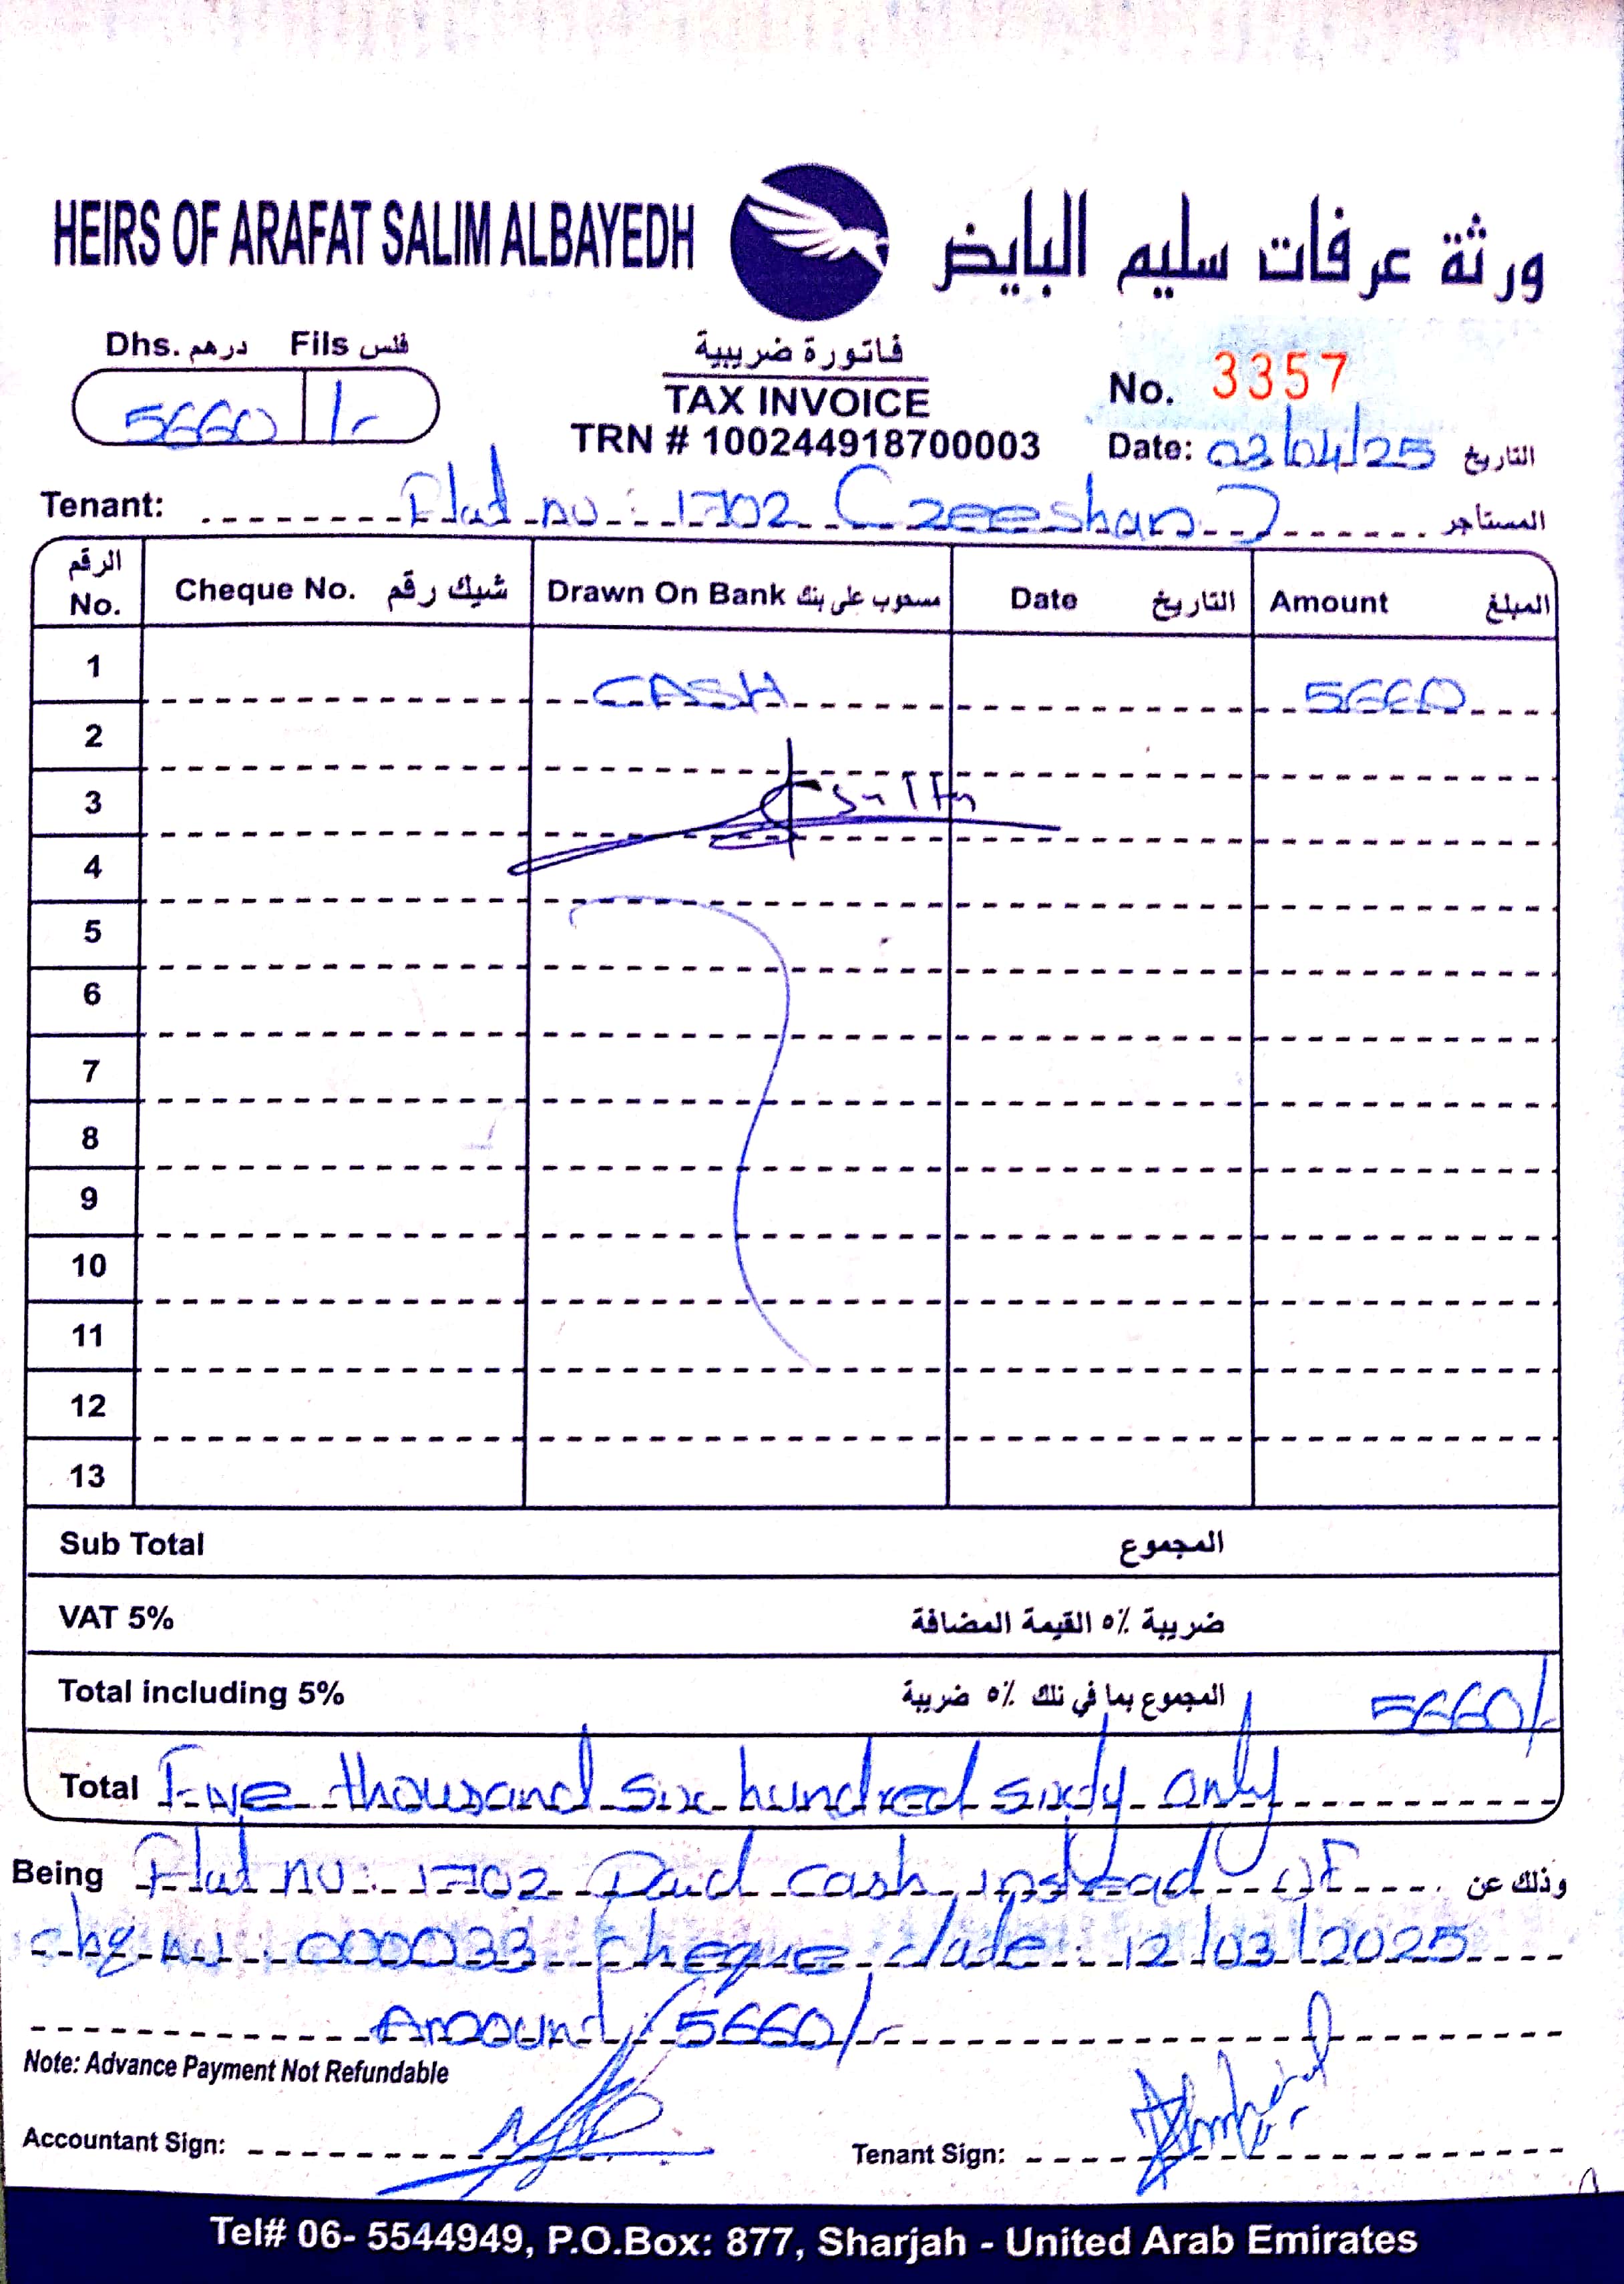 HEIRS OF ARAFAT SALIM ALBAYEDH ورثة عرفات سليم البايض
Dhs. درهم Fils فلس
5660 /-
فاتورة ضريبية
TAX INVOICE
TRN # 100244918700003
No. 3357
Date: 03/04/25 التاريخ
Tenant: Flat no: 1702 (zeeshan) المستأجر
الرقم No. Cheque No. شيك رقم Drawn On Bank مسحوب على بنك Date التاريخ Amount المبلغ
1 CASH 5660
2
3
4
5
6
7
8
9
10
11
12
13
Sub Total المجموع
VAT 5% ضريبة ٥٪ القيمة المضافة
Total including 5% المجموع بما في ذلك ٥٪ ضريبة 5660/-
Total Five thousand six hundred sixty only
Being Flat no: 1702 Paid cash instead OF وذلك عن
chq no: 000033 cheque date: 12/03/2025
Amount 5660/-
Note: Advance Payment Not Refundable
Accountant Sign: Tenant Sign:
Tel# 06- 5544949, P.O.Box: 877, Sharjah - United Arab Emirates